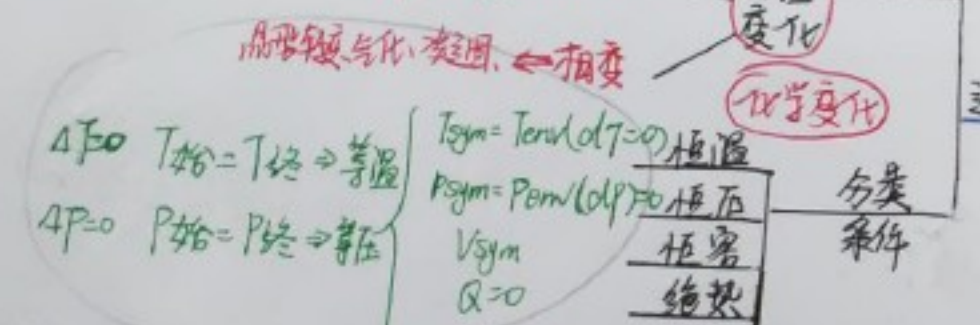 变化
晶型转变、气化、凝固 ← 相变
化学变化
ΔT=0 T始=T终⇒等温
ΔP=0 P始=P终⇒等压
Tsym=Temv(dT=0) 恒温
Psym=Pemv(dP=0) 恒压
Vsym 恒容
Q=0 绝热
分类
条件